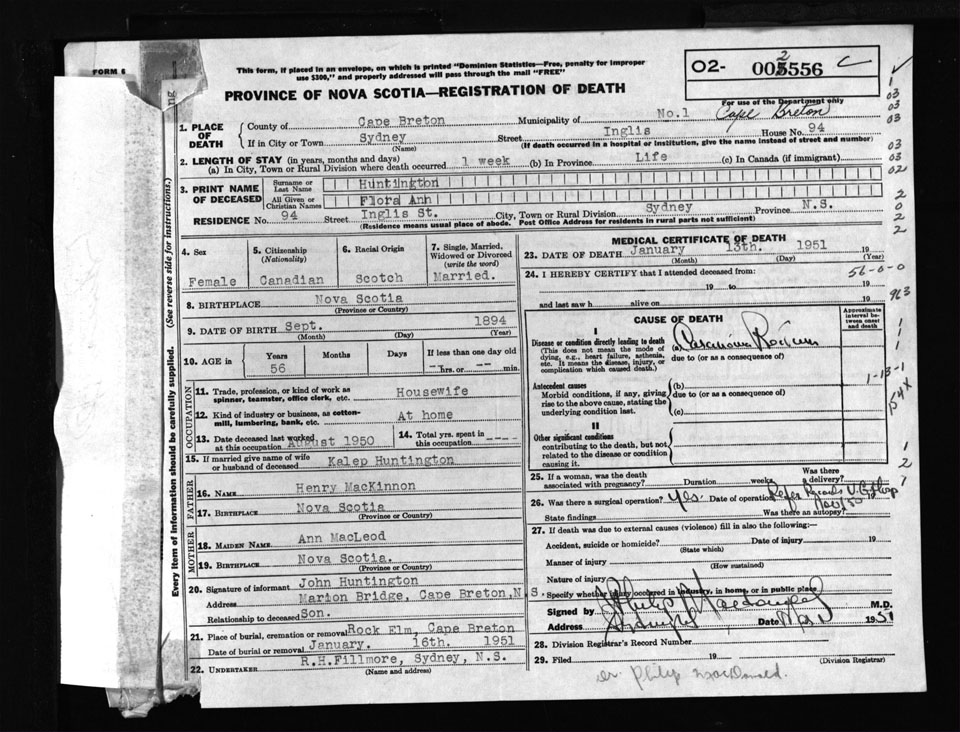 FORM 6
This form, if placed in an envelope, on which is printed "Dominion Statistics—Free, penalty for improper
use $300," and properly addressed will pass through the mail "FREE"
O2- 005556 2 C
PROVINCE OF NOVA SCOTIA—REGISTRATION OF DEATH
For use of the Department only
Cape Breton
1. PLACE OF DEATH
County of Cape Breton Municipality of No.1
If in City or Town Sydney Street Inglis House No. 94
(Name) (If death occurred in a hospital or institution, give the name instead of street and number)
2. LENGTH OF STAY (in years, months and days)
(a) In City, Town or Rural Division where death occurred 1 week (b) In Province Life (c) In Canada (if immigrant)
3. PRINT NAME OF DECEASED
Surname or Last Name Huntington
All Given or Christian Names Flora Ann
RESIDENCE No. 94 Street Inglis St. City, Town or Rural Division Sydney Province N.S.
(Residence means usual place of abode. Post Office Address for residents in rural parts not sufficient)
4. Sex Female
5. Citizenship (Nationality) Canadian
6. Racial Origin Scotch
7. Single, Married, Widowed or Divorced (write the word) Married.
8. BIRTHPLACE Nova Scotia
(Province or Country)
9. DATE OF BIRTH Sept. 1894
(Month) (Day) (Year)
10. AGE in Years Months Days If less than one day old
56 -- hrs. or -- min.
OCCUPATION
11. Trade, profession or kind of work as spinner, teamster, office clerk, etc. Housewife
12. Kind of industry or business, as cotton-mill, lumbering, bank, etc. At home
13. Date deceased last worked at this occupation August 1950
14. Total yrs. spent in this occupation ----
15. If married give name of wife or husband of deceased Kalep Huntington
FATHER
16. NAME Henry MacKinnon
17. BIRTHPLACE Nova Scotia
(Province or Country)
MOTHER
18. MAIDEN NAME Ann MacLeod
19. BIRTHPLACE Nova Scotia.
(Province or Country)
20. Signature of informant John Huntington
Address Marion Bridge, Cape Breton,N.S.
Relationship to deceased Son.
21. Place of burial, cremation or removal Rock Elm, Cape Breton
Date of burial or removal January. 16th. 1951
22. UNDERTAKER R.H.Fillmore, Sydney, N.S.
(Name and address)
MEDICAL CERTIFICATE OF DEATH
23. DATE OF DEATH January 13th. 1951 19
(Month) (Day) (Year)
24. I HEREBY CERTIFY that I attended deceased from:
56-0-0
19 to 19
and last saw h alive on 19
963
CAUSE OF DEATH
Approximate interval between onset and death
I
Disease or condition directly leading to death
(This does not mean the mode of dying, e.g., heart failure, asthenia, etc. It means the disease, injury, or complication which caused death.)
(a) Carcinoma Rectum
due to (or as a consequence of)
1-13-1
154X
Antecedent causes
Morbid conditions, if any, giving rise to the above cause, stating the underlying condition last.
(b)
due to (or as a consequence of)
(c)
II
Other significant conditions
contributing to the death, but not related to the disease or condition causing it.
25. If a woman, was the death associated with pregnancy? Duration weeks Was there delivery?
26. Was there a surgical operation? Yes. Date of operation
State findings Was there an autopsy?
27. If death was due to external causes (violence) fill in also the following:—
Accident, suicide or homicide? Date of injury 19
(State which)
Manner of injury
(How sustained)
Nature of injury
Specify whether injury occurred in industry, in home, or in public place
Signed by Philip MacDonald M.D.
Address Sydney Date 1951
28. Division Registrar's Record Number
29. Filed 19
(Division Registrar)
Dr. Philip MacDonald.
(See reverse side for instructions.)
Every item of information should be carefully supplied.